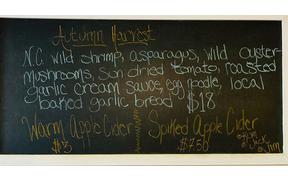 Autumn Harvest
N.C. wild shrimp, asparagus, wild oyster
mushrooms, sun dried tomato, roasted
garlic cream sauce, egg noodle, local
baked garlic bread $18
Warm Apple Cider
$3
Spiked Apple Cider
$7.50
Jim